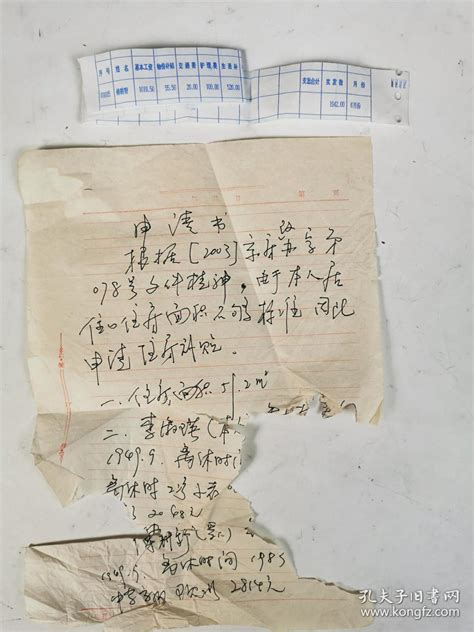 序号 姓名 基本工资 物价补贴 交通费 护理费 生活补
1019.50 55.50 20.00 100.00 520.00
支出合计 实发数 月份
1042.00 6月份
第 页
申请书
根据[2003]京房改办字第
078号文件精神，由于本人居
住的住房面积不够标准因此
申请住房补贴。
一、住房面积51.2m²
二、李淑瑛（本
1949.9. 离休时间
离休时
2048元
1949.9. 离休时间198
2814元
孔夫子旧书网
kongfz.com